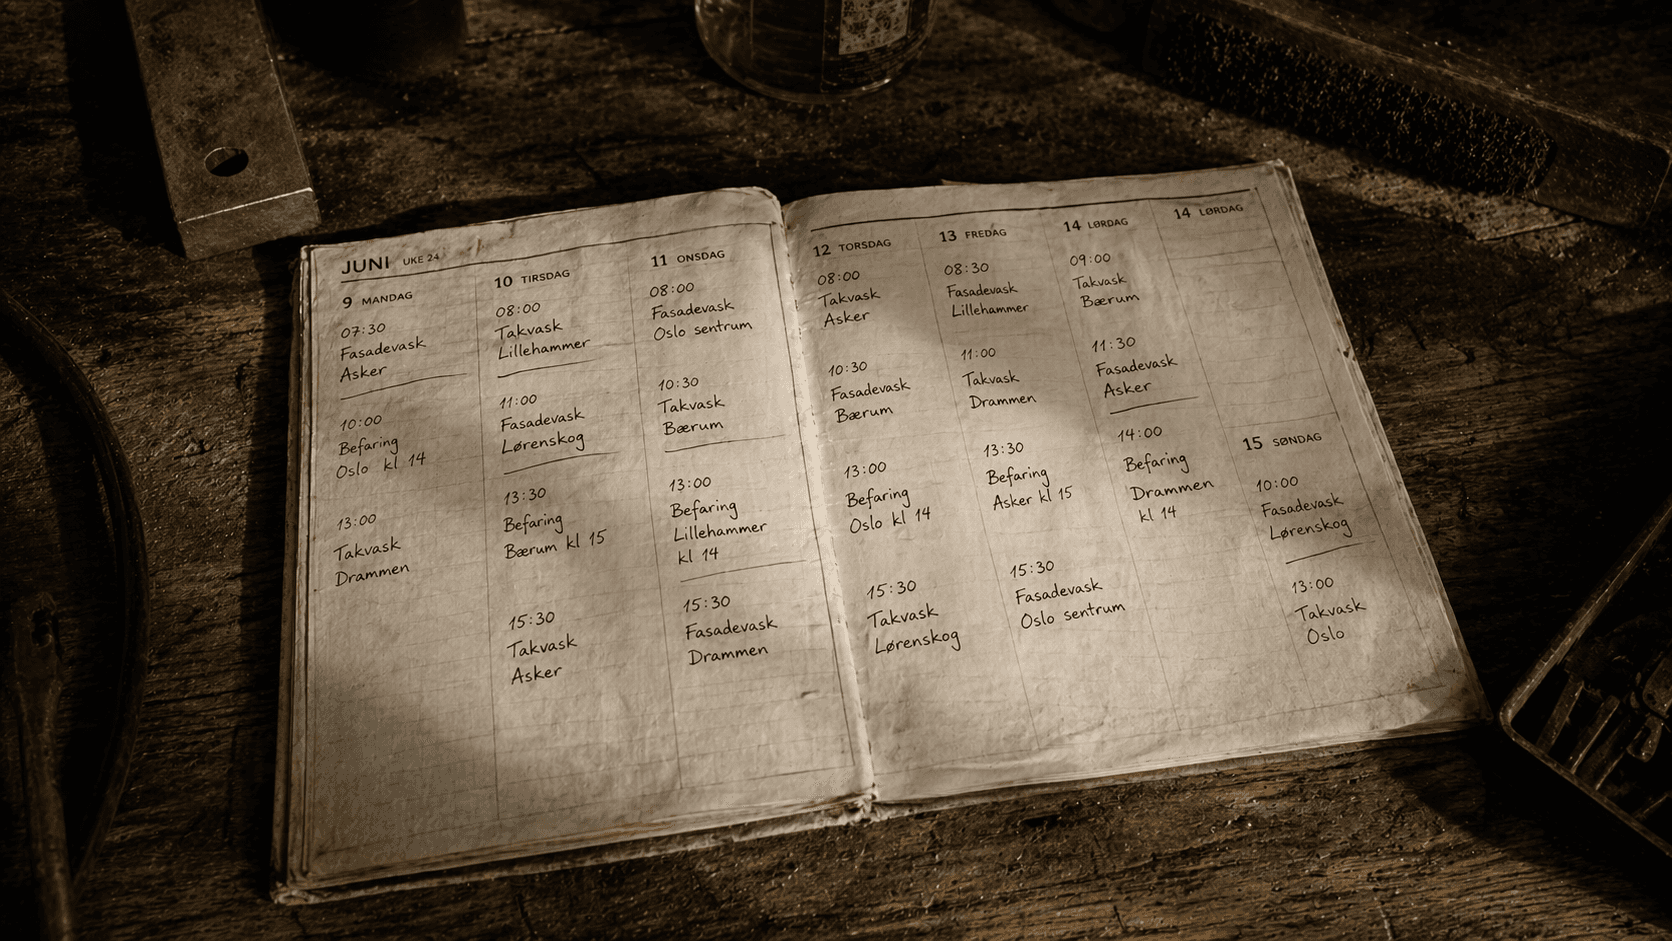 JUNI UKE 24
9 MANDAG
07:30
Fasadevask
Asker
10:00
Befaring
Oslo kl 14
13:00
Takvask
Drammen
10 TIRSDAG
08:00
Takvask
Lillehammer
11:00
Fasadevask
Lørenskog
13:30
Befaring
Bærum kl 15
15:30
Takvask
Asker
11 ONSDAG
08:00
Fasadevask
Oslo sentrum
10:30
Takvask
Bærum
13:00
Befaring
Lillehammer
kl 14
15:30
Fasadevask
Drammen
12 TORSDAG
08:00
Takvask
Asker
10:30
Fasadevask
Bærum
13:00
Befaring
Oslo kl 14
15:30
Takvask
Lørenskog
13 FREDAG
08:30
Fasadevask
Lillehammer
11:00
Takvask
Drammen
13:30
Befaring
Asker kl 15
15:30
Fasadevask
Oslo sentrum
14 LØRDAG
09:00
Takvask
Bærum
11:30
Fasadevask
Asker
14:00
Befaring
Drammen
kl 14
14 LØRDAG
15 SØNDAG
10:00
Fasadevask
Lørenskog
13:00
Takvask
Oslo